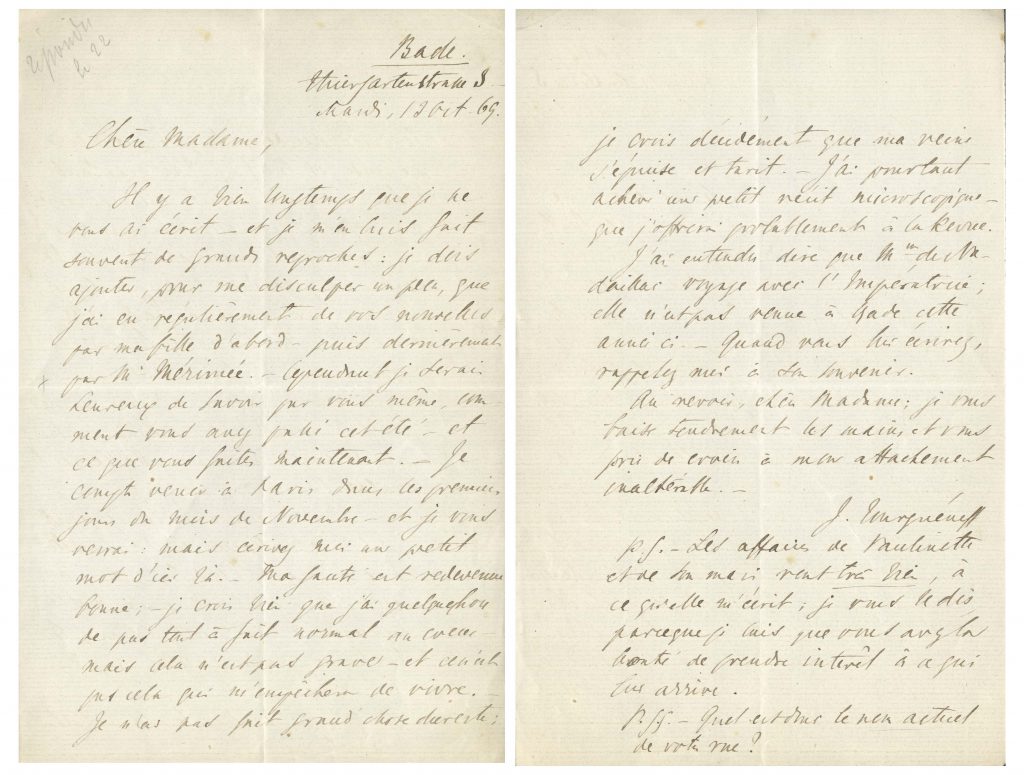 répondu
le 22
Bade.
Thiergartenstrasse 3.
Mardi, 12 Oct. 69.
Chère Madame,
Il y a bien longtemps que je ne
vous ai écrit – et je m'en suis fait
souvent de grands reproches : je dois
ajouter, pour me disculper un peu, que
j'ai eu régulièrement de vos nouvelles
par ma fille d'abord – puis dernièrement
par Mr Mérimée. – Cependant je serais
heureux de savoir par vous même, com-
ment vous avez passé cet été – et
ce que vous faites maintenant. – Je
compte venir à Paris dans les premiers
jours du mois de Novembre – et je vous
verrai : mais écrivez moi un petit
mot d'ici là. – Ma santé est redevenue
bonne ; – je crois bien que j'ai quelquechose
de pas tout à fait normal au coeur –
mais cela n'est pas grave – et ce n'est
pas cela qui m'empêchera de vivre. –
Je n'ai pas fait grand chose
je crois décidément que ma veine
s'épuise et tarit. – J'ai pourtant
achevé un petit récit microscopique –
que j'offrirai probablement à la Revue.
J'ai entendu dire que Mme de Na-
daillac voyage avec l'Impératrice ;
elle n'est pas venue à Bade cette
année ci. – Quand vous lui écrirez,
rappelez moi à son souvenir.
Au revoir, chère Madame ; je vous
baise tendrement les mains et vous
prie de croire à mon attachement
inaltérable. –
J. Tourguéneff
P.S. – Les affaires de Paulinette
et de son mari vont très bien, à
ce qu'elle m'écrit ; je vous le dis
parceque je sais que vous avez la
bonté de prendre intérêt à ce qui
lui arrive.
P.SS. – Quel est donc le nom actuel
de votre rue ?